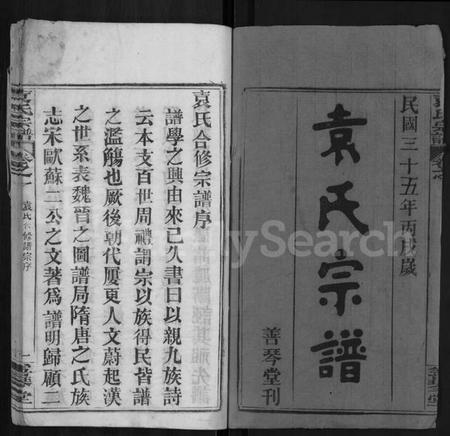 民國三十五年丙戌歲
袁氏宗譜
善琴堂刊
袁氏合修宗譜序
譜學之興由來已久書曰以親九族詩
云本支百世周禮謂宗以族得民皆譜
之濫觴也厥後朝代屢更人文蔚起漢
之世系表魏晉之圖譜局隋唐之氏族
志宋歐蘇二公之文著為譜明歸顧二
袁氏宗譜
卷之一
FamilySearch